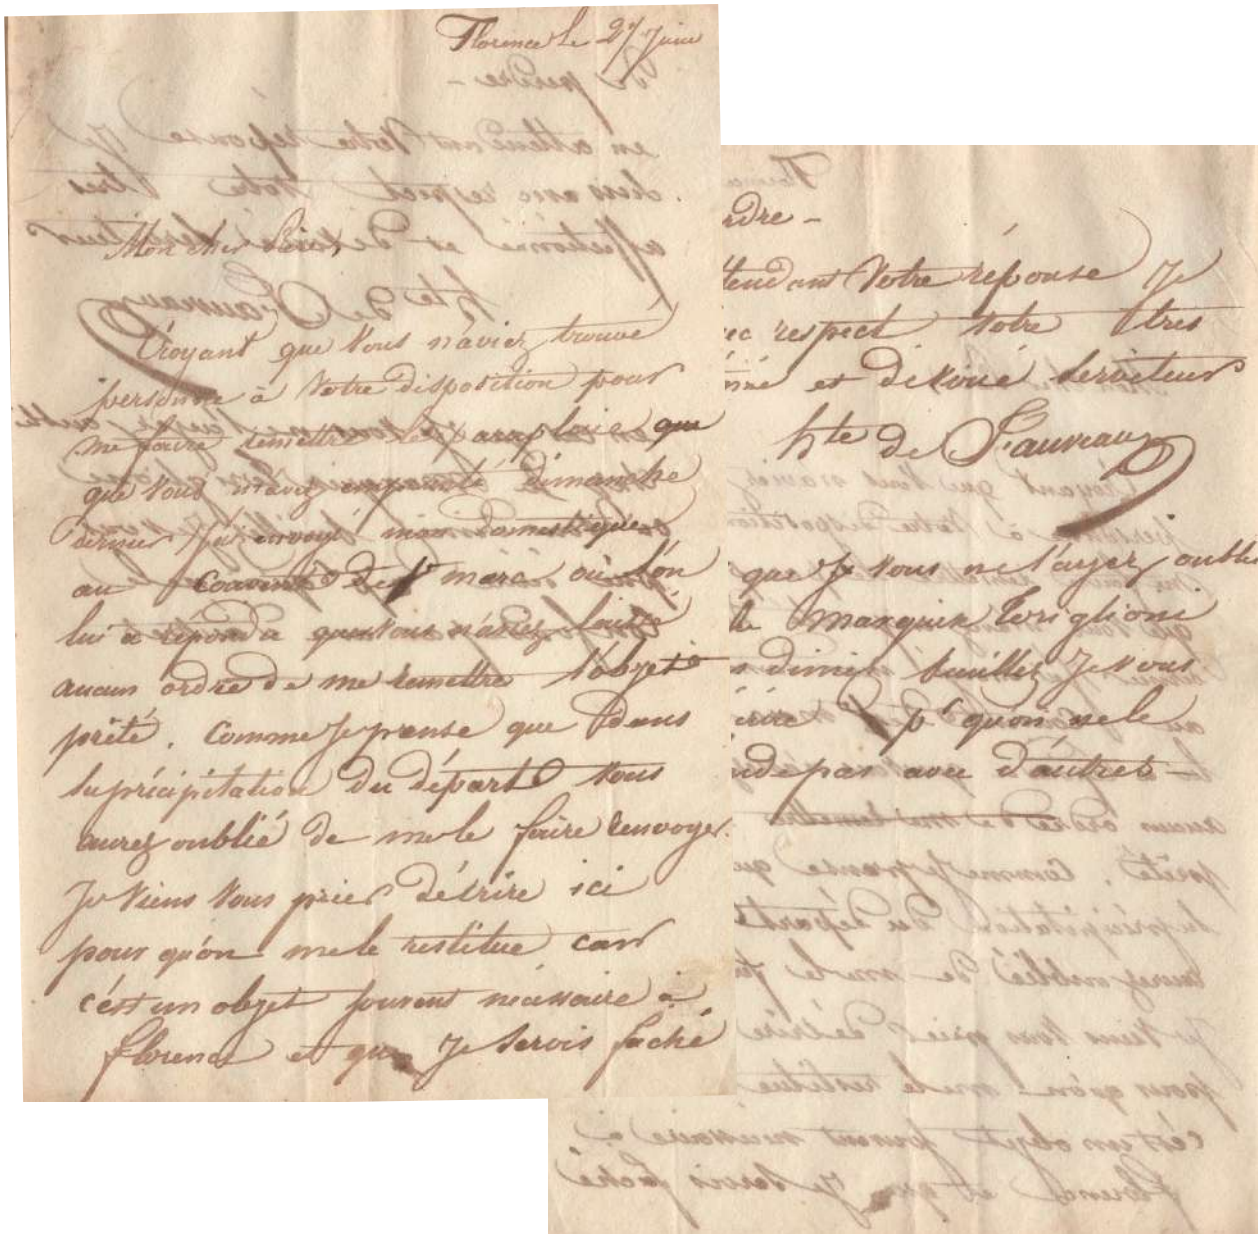 Florence le 27 Juin
Mon cher
Croyant que vous n'aviez trouvé
personne à votre disposition pour
me faire remettre le parapluie que
que vous m'avez emprunté dimanche
dernier j'ai envoyé mon domestique
au couvent de St marc où l'on
lui a répondu que vous n'aviez laissé
aucun ordre de me remettre l'objet
prêté. Comme Je pense que dans
la précipitation du départ vous
aurez oublié de me le faire renvoyer.
Je viens vous prier d'écrire ici
pour qu'on me le restitue car
c'est un objet souvent nécessaire à
florence et que Je serois faché
rdre -
ttendant votre réponse Je
ec respect votre tres
nné et dévoué serviteur
hte de Fauveau
que Je vous ne l'ayez oublié
le Marquis
veuillez Je vous
pr qu'on ne le
nde pas avec d'autres -